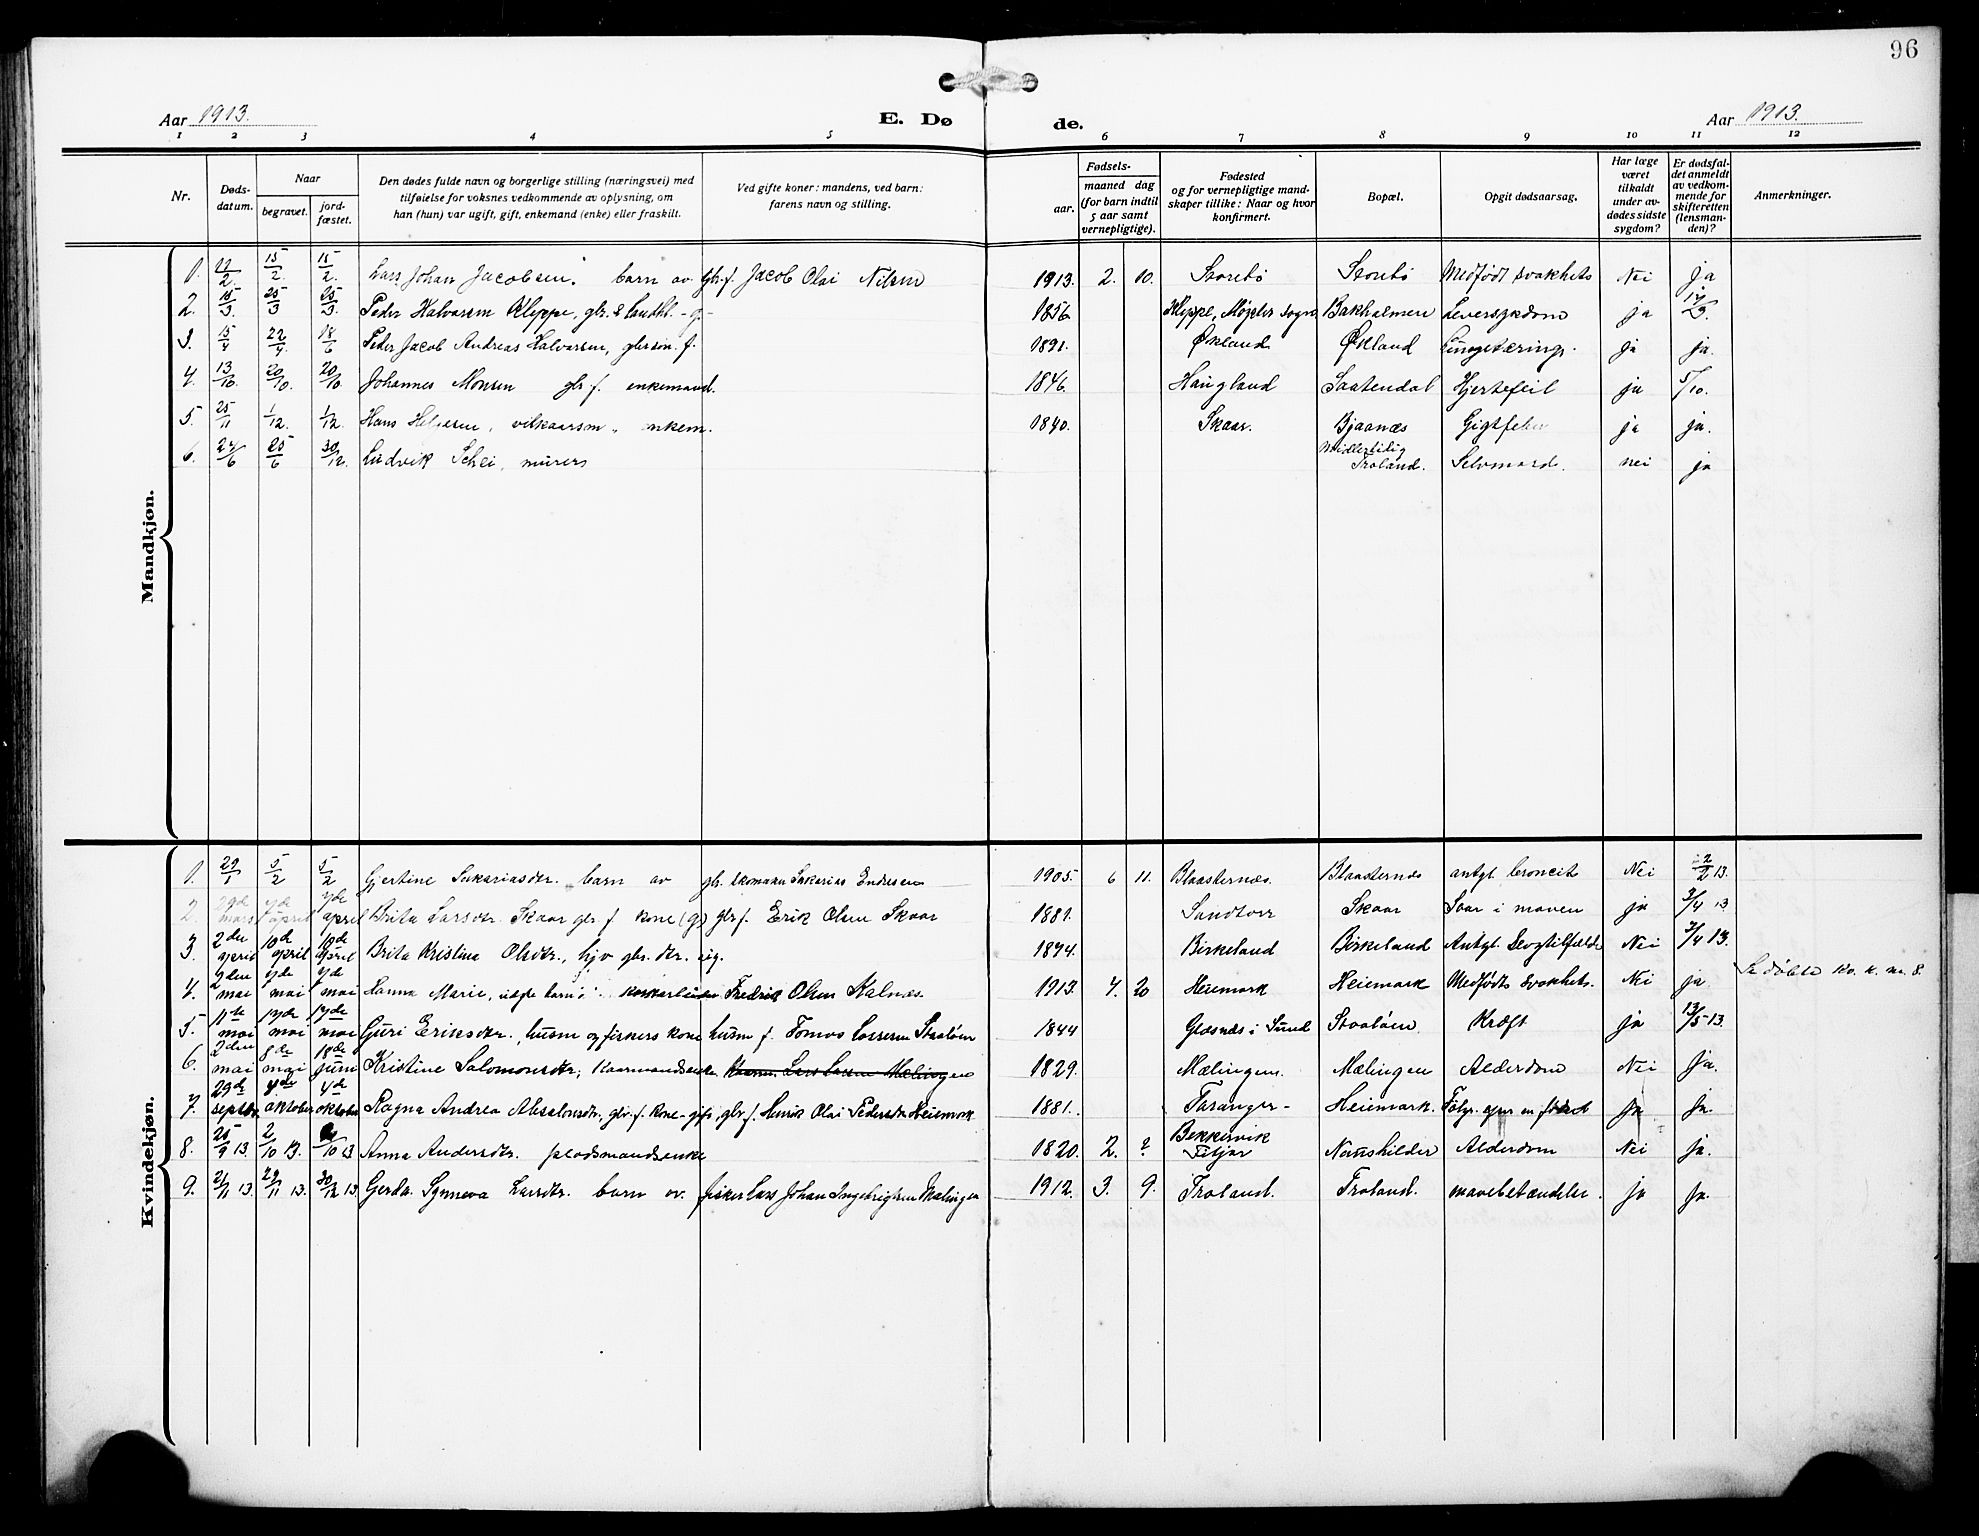 96
Aar 1913. E. Dø de. Aar 1913.
1 2 3 4 5 6 7 8 9 10 11 12
Nr. Døds-datum. Naar begravet. jord-fæstet. Den dødes fulde navn og borgerlige stilling (næringsvei) med tilføielse for voksnes vedkommende av oplysning, om han (hun) var ugift, gift, enkemand (enke) eller fraskilt. Ved gifte koner: mandens, ved barn: farens navn og stilling. Fødsels- aar. maaned dag (for barn indtil 5 aar samt vernepligtige). Fødested og for vernepligtige mand-skaper tillike: Naar og hvor konfirmert. Bopæl. Opgit dødsaarsag. Har læge været tilkaldt under av-dødes sidste sygdom? Er dødsfal-det anmeldt av vedkom-mende for skifteretten (lensman-den)? Anmerkninger.
Mandkjøn.
1. 15/2 15/2. Lars Johan Jacobsen. barn av gbr.f. Jacob Olai Nilsen 1913. 2. 10. Storebø Storebø Medfødt svakhets Nei ja
2. 15/3. 25/3 25/3. Peder Halvorsen Kleppe, gbr. & landhl. - g - 1856 Kleppe, Møgster sogn Bakholmen Leversygdom ja 17/3.
3. 15/4 22/4. 18/6 Peder Jacob Andreas Halvorsen, gbr.søn. f. 1891. Økland Økland Lungetæring. ja ja.
4. 13/10. 20/10. 20/10 Johannes Monsen gbr.f. enkemand. 1846. Haugland Saatendal Hjertefeil ja 5/10.
5. 25/11 1/12. 1/12. Hans vilkaarsm., enkem. 1840. Skaar. Bjaanæs Gigtfeber ja ja.
6. 24/6 25/6 30/12. Ludvik Schei, murers Midlertidig Troland. Selvmord. nei ja
Kvindekjøn.
1. 29/1 5/2 5/2 Gjertine Sakariasdtr. barn av gbr. skomaker Sakarias Endresen 1905. 6 11. Blaasternæs. Blaasternes antgl. broncit Nei 2/2 13.
2. 29de mars 4de april 4de april Brita Larsdtr. Skaar gbr.f. kone (g) gbr f. Erik Olsen Skaar 1881. Sandtorv Skaar Saar i maven ja 3/4 13
3. 2den april 10de april 10de april Brita Kristina Olsdtr., hjv gbr. dtr. ug. 1874. Birkeland Birkeland Antgl. Slagtilfælde Nei 3/4 13.
4. 2den mai 4de mai 4de mai Hanna Marie, uægte barn. Fredrik Olsen Kalnæs. 1913. 4. 20 Heiemark Heiemark Medfødt svakhet. Nei ja. Se døbte kv. k. nr. 8.
5. 11te mai 17de mai 17de mai Guri Eriksdtr., husm og fiskers kone husm f. Tomas Larsen Staaløen 1844 Glesnæs i Sund Staaløen Kræft ja 13/5 13.
6. 2den mai 8de mai 18de juni Kristine Salomonsdtr, Kaarmandsenke. 1829. Mælingen. Mælingen Alderdom Nei Ja.
7. 29de septbr. 4de oktober 4de oktober Ragna Andrea Absalonsdtr, gbr.f. kone - gift, gbr f. Henrik Olai Pedersen Heiemark 1881. Taranger - Heiemark. Følger efter en fødsel ja Ja.
8. 25/9 13. 2/10 13. /10 13 Anna Andersdtr. pladsmandsenke 1820. 2. ? Bekkervik Fitjar Naushilder Alderdom Nei Ja.
9. 21/11 13. 29/11 13. 30/12 13 Gerda Synneva Larsdtr. barn av. fisker Lars Johan Ingebrigtsen Mælingen 1912. 3. 9. Troland. Troland. mavebetændelse. ja Ja.